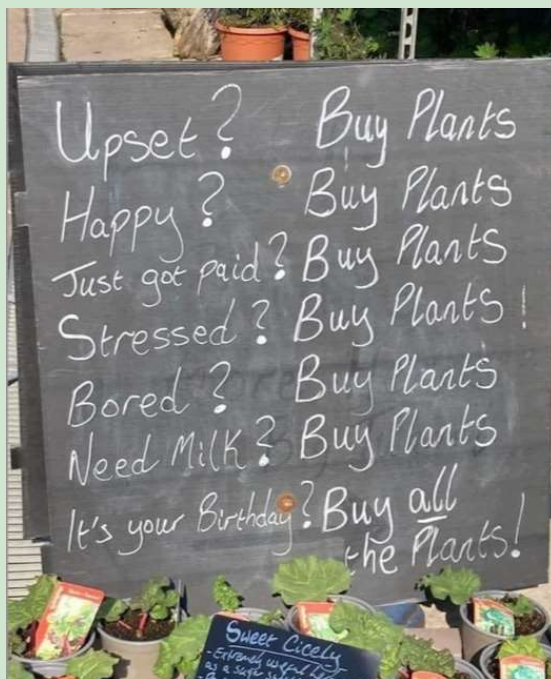 Upset? Buy Plants
Happy? Buy Plants
Just got paid? Buy Plants
Stressed? Buy Plants!
Bored? Buy Plants
Need Milk? Buy Plants
It's your Birthday? Buy all
the Plants!
Sweet Cicely
- Extremely useful
as a sugar